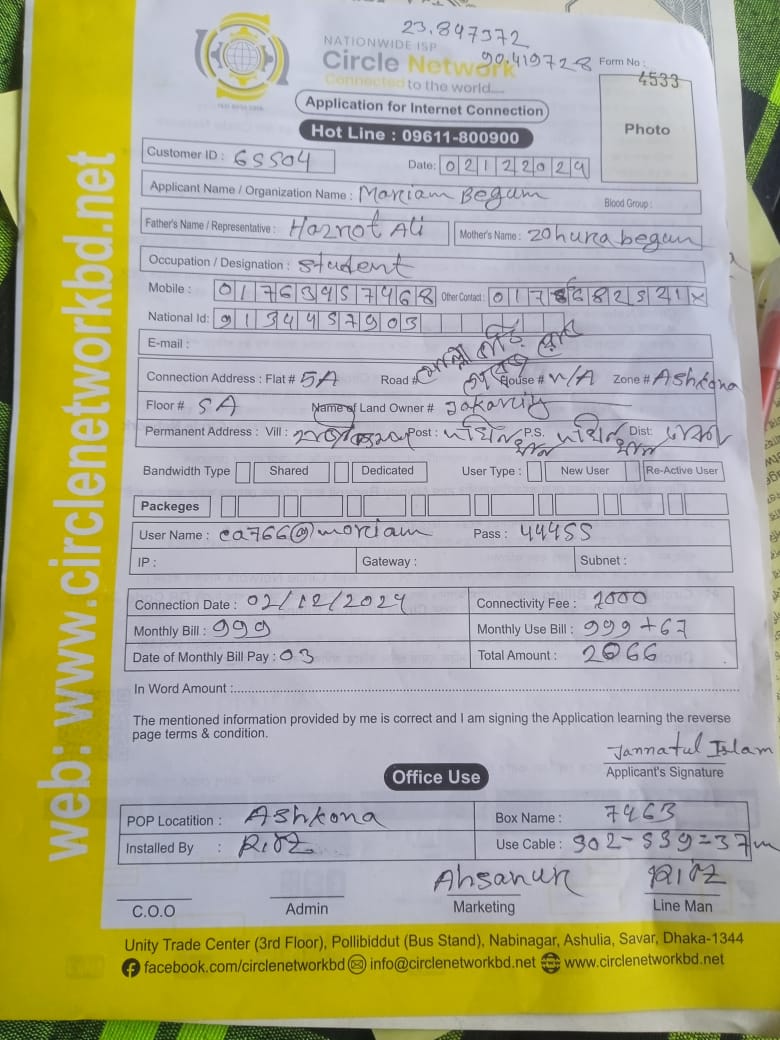 23.847372
90.419728
NATIONWIDE ISP
Circle Network
Connected to the world....
Form No :
4533
Application for Internet Connection
Photo
Hot Line : 09611-800900
Customer ID : 65504
Date: 02122024
Applicant Name / Organization Name : Moriam Begum
Blood Group :
Father's Name / Representative : Haznot Ali
Mother's Name : zohura begum
Occupation / Designation : Student
Mobile : 01763457468 Other Contact :
National Id: 9134457903
E-mail :
Connection Address : Flat # 5A Road # House # N/A Zone # Ashkona
Floor # 5A Name of Land Owner #
Permanent Address : Vill : Post : P.S. Dist:
Bandwidth Type Shared Dedicated User Type : New User Re-Active User
Packeges
User Name : ca766@moriam Pass : 44455
IP : Gateway : Subnet :
Connection Date : 02/12/2024 Connectivity Fee : 1000
Monthly Bill : 999 Monthly Use Bill : 999 + 67
Date of Monthly Bill Pay : 03 Total Amount : 2066
In Word Amount :
The mentioned information provided by me is correct and I am signing the Application learning the reverse
page terms & condition.
Jannatul Islam
Applicant's Signature
Office Use
POP Locatition : Ashkona Box Name : 7463
Installed By : Use Cable : 902-939=37m
Ahsanur
C.O.O Admin Marketing Line Man
Unity Trade Center (3rd Floor), Pollibiddut (Bus Stand), Nabinagar, Ashulia, Savar, Dhaka-1344
facebook.com/circlenetworkbd info@circlenetworkbd.net www.circlenetworkbd.net
web: www.circlenetworkbd.net